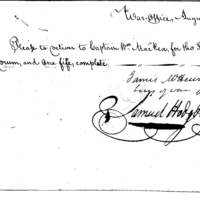 War-Office, Augu
Please to deliver to Captain Wm. Mackea, for the
Drum, and one fife, complete.
James McHen
Secy of War
Samuel Hodgd